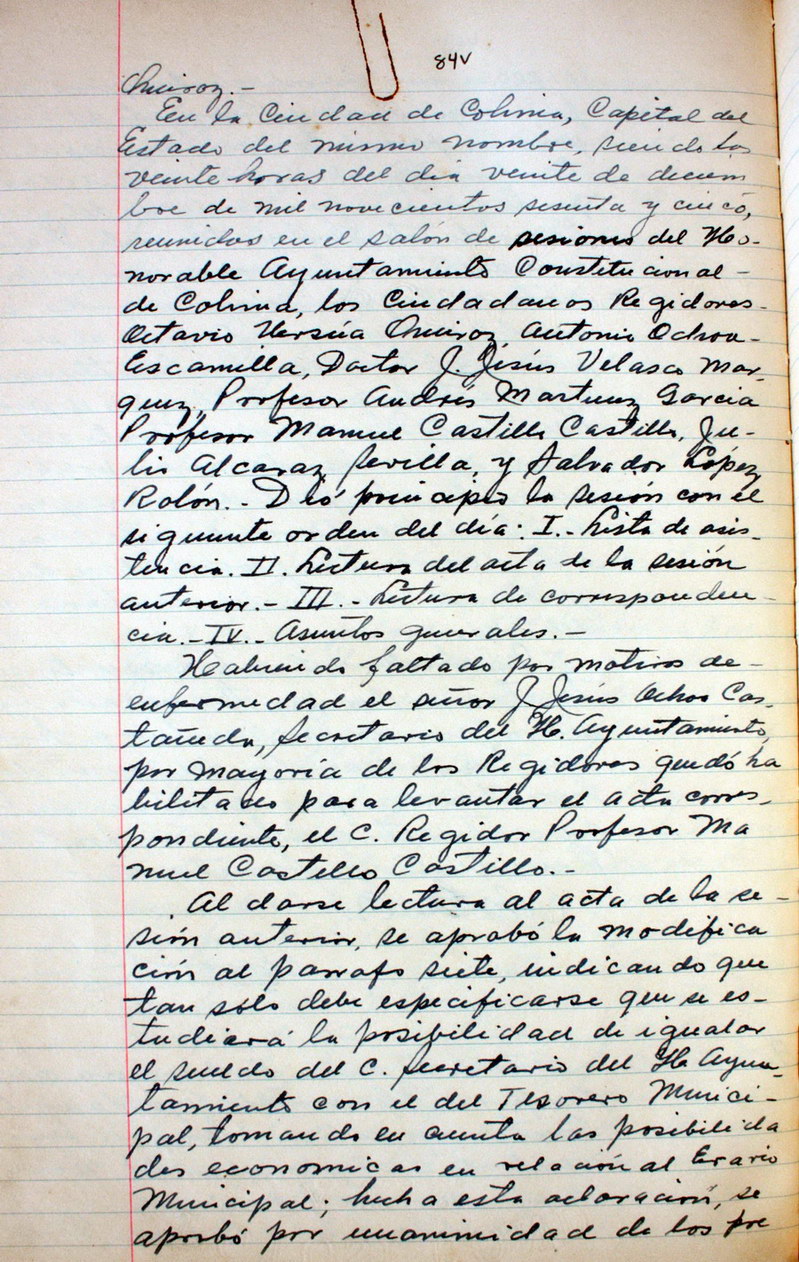 84v
Quiroz.-
En la Ciudad de Colima, Capital del
Estado del mismo nombre, siendo las
veinte horas del día veinte de diciem
bre de mil novecientos sesenta y cinco,
reunidos en el salón de sesiones del Ho-
norable Ayuntamiento Constitucional -
de Colima, los Ciudadanos Regidores-
Octavio Versúa Quiroz, Antonio Ochoa-
Escamilla, Doctor J. Jesús Velasco Mar-
quez, Profesor Andrés Martinez Garcia
Profesor Manuel Castillo Castillo, Ju-
lio Alcaraz Sevilla, y Salvador López
Rolón.- Dió principio la sesión con el
siguiente orden del día: I.- Lista de asis-
tencia. II. Lectura del acta de la sesión
anterior.- III.- Lectura de corresponden-
cia.- IV.- Asuntos generales.-
Habiendo faltado por motivos de-
enfermedad el señor J. Jesús Ochoa Cas-
tañeda, Secretario del H. Ayuntamiento,
por mayoría de los Regidores quedó ha
bilitado para levantar el acta corres-
pondiente, el C. Regidor Profesor Ma
nuel Castillo Castillo.-
Al darse lectura al acta de la se-
sión anterior, se aprobó la modifica
ción al parrafo siete, indicando que
tan sólo debe especificarse que se es-
tudiará la posibilidad de igualar
el sueldo del C. Secretario del H. Ayun-
tamiento con el del Tesorero Munici-
pal, tomando en cuenta las posibilida
des economicas en relación al Erario
Municipal; hecha esta aclaración, se
aprobó por unanimidad de los pre